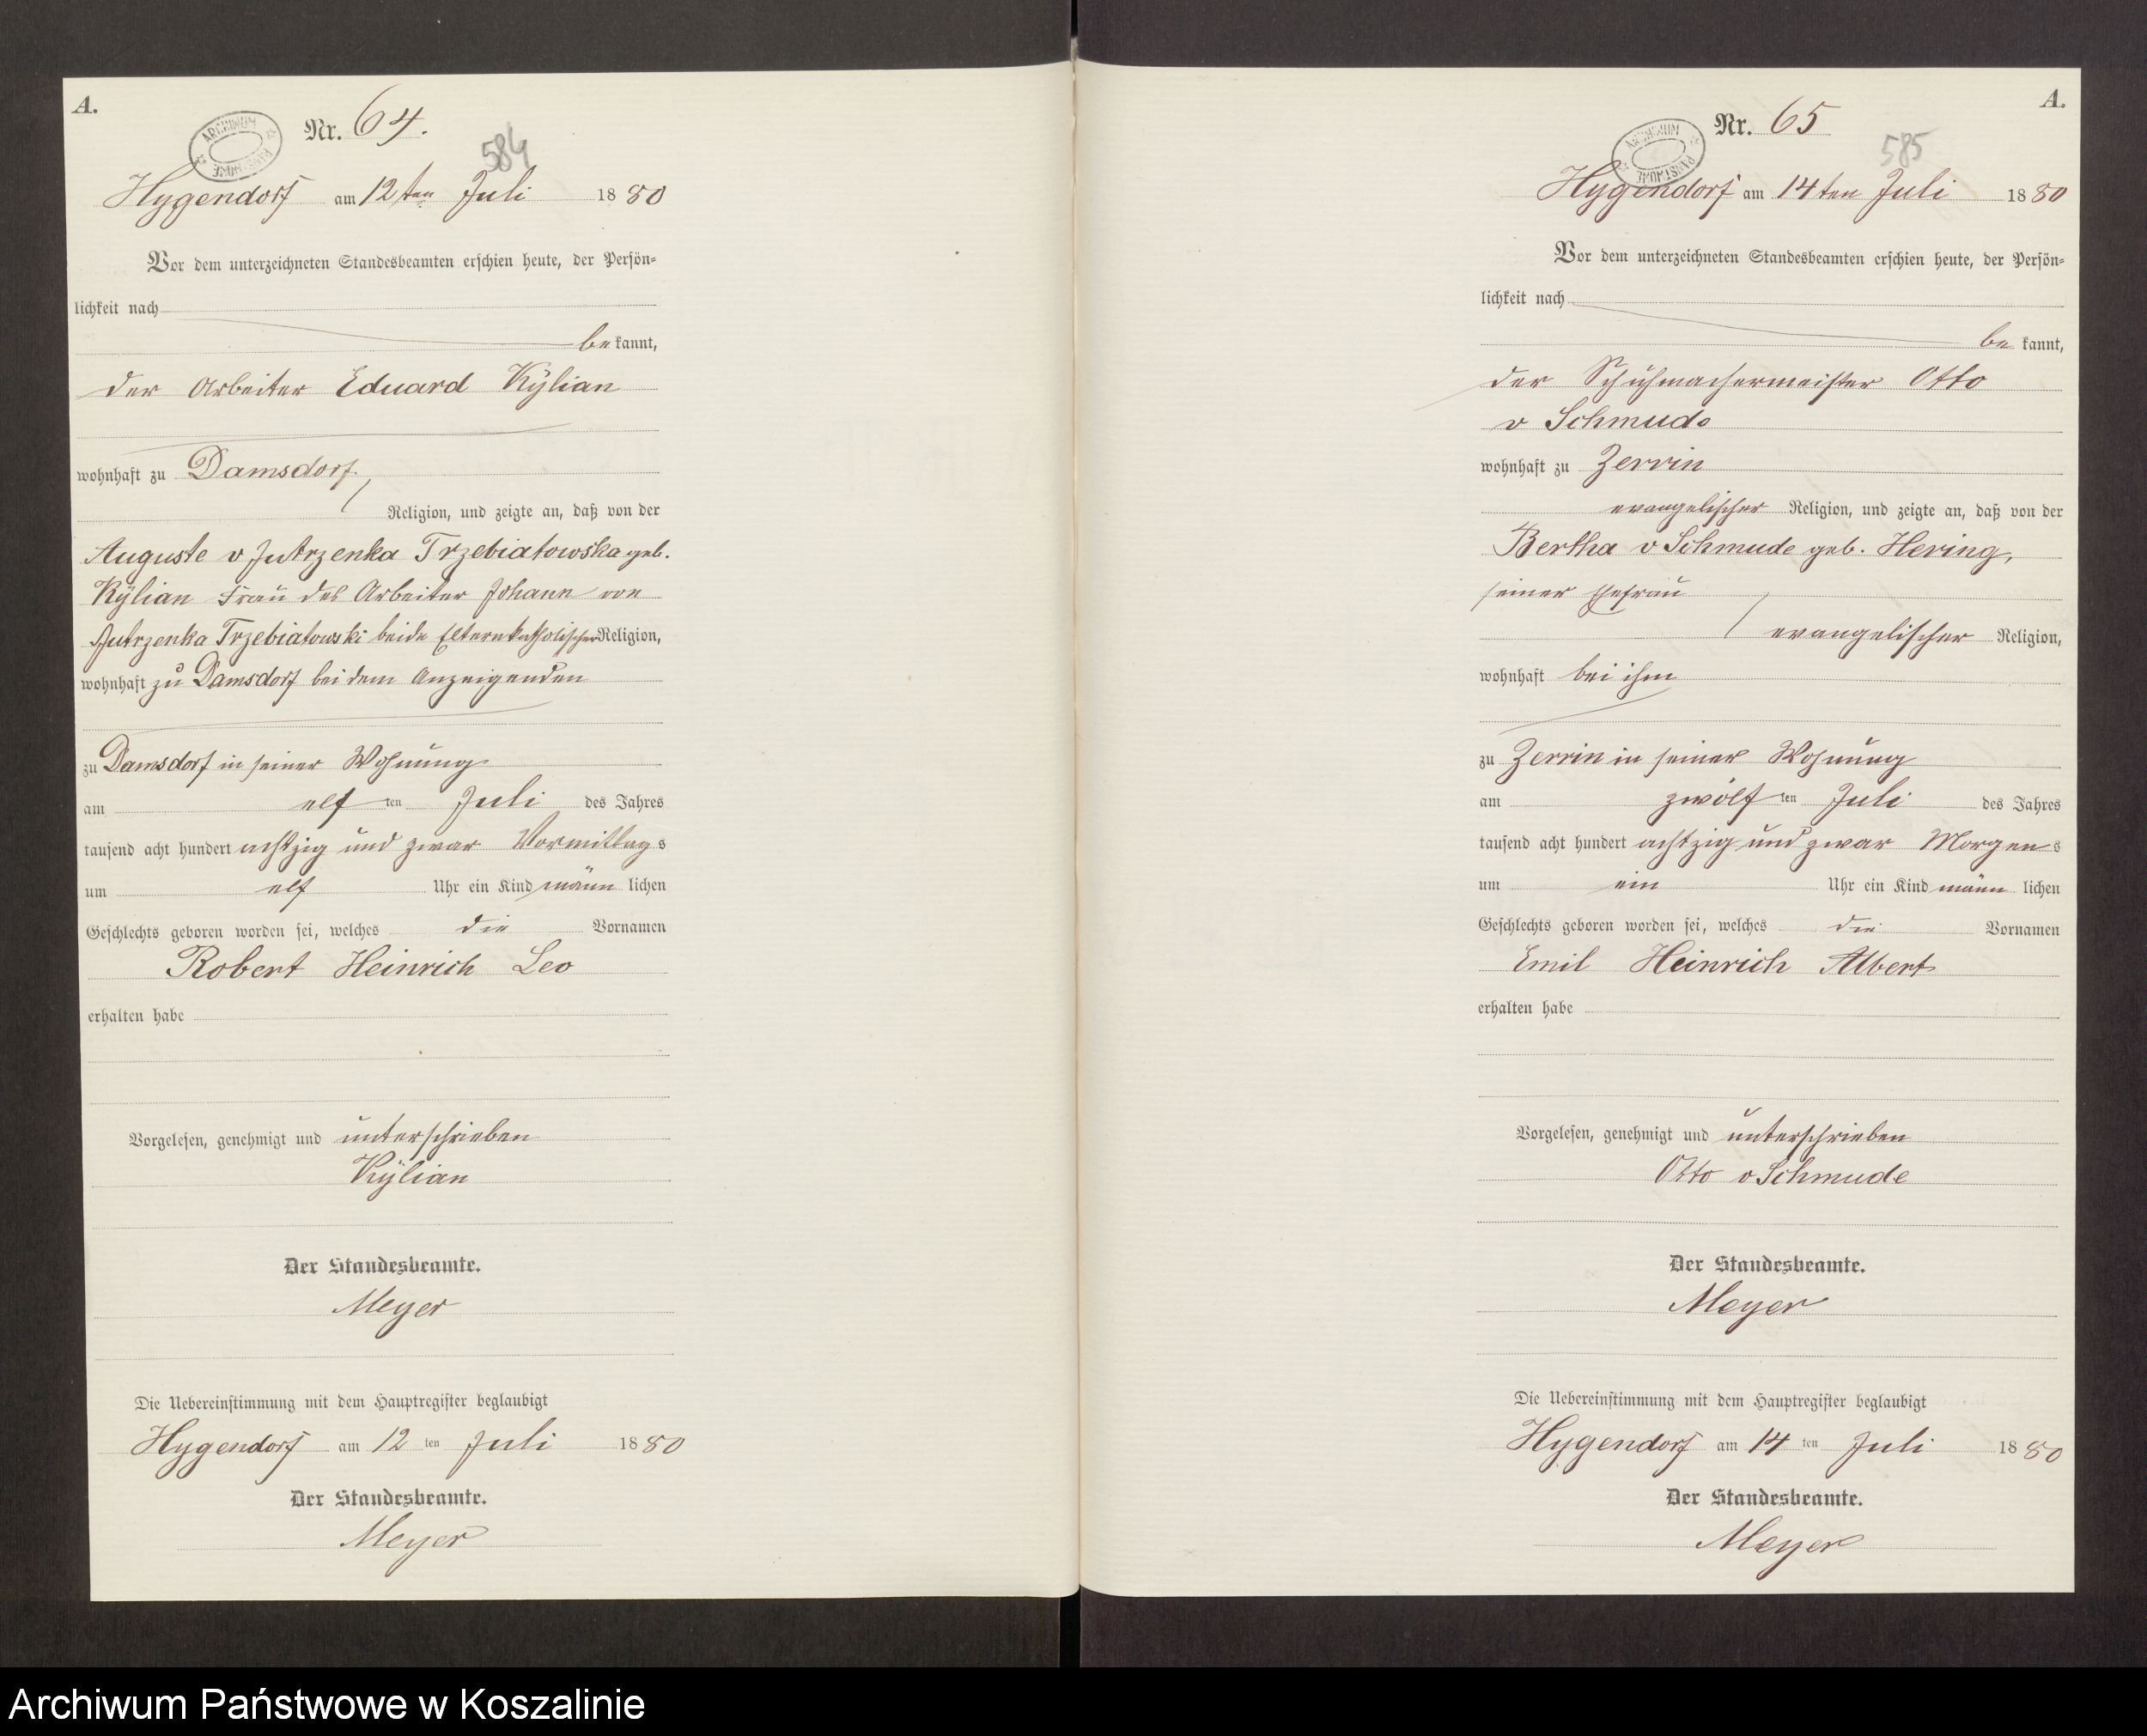 A.
Nr. 64.
584
Hygendorf am 12ten Juli 1880
Vor dem unterzeichneten Standesbeamten erschien heute, der Persön-
lichkeit nach
be kannt,
der Arbeiter Eduard Kÿlian
wohnhaft zu Damsdorf
Religion, und zeigte an, daß von der
Auguste v Jutrzenka Trzebiatowska geb.
Kÿlian Frau des Arbeiter Johann von
Jutrzenka Trzebiatowski beide Eltern katholischer Religion,
wohnhaft zu Damsdorf bei dem Anzeigenden
zu Damsdorf in seiner Wohnung
am elf ten Juli des Jahres
tausend acht hundert achtzig und zwar Vormittag s
um elf Uhr ein Kind männ lichen
Geschlechts geboren worden sei, welches die Vornamen
Robert Heinrich Leo
erhalten habe
Vorgelesen, genehmigt und unterschrieben
Kÿlian
Der Standesbeamte.
Meyer
Die Uebereinstimmung mit dem Hauptregister beglaubigt
Hygendorf am 12 ten Juli 1880
Der Standesbeamte.
Meyer
A.
Nr. 65
585
ARCHIWUM
Hygendorf am 14ten Juli 1880
Vor dem unterzeichneten Standesbeamten erschien heute, der Persön-
lichkeit nach
be kannt,
der Schuhmachermeister Otto
v Schmude
wohnhaft zu Zerrin
evangelischer Religion, und zeigte an, daß von der
Bertha v Schmude geb. Hering,
seiner Ehefrau
evangelischer Religion,
wohnhaft bei ihm
zu Zerrin in seiner Wohnung
am zwölf ten Juli des Jahres
tausend acht hundert achtzig und zwar Morgen s
um ein Uhr ein Kind männ lichen
Geschlechts geboren worden sei, welches die Vornamen
Emil Heinrich Albert
erhalten habe
Vorgelesen, genehmigt und unterschrieben
Otto v Schmude
Der Standesbeamte.
Meyer
Die Uebereinstimmung mit dem Hauptregister beglaubigt
Hygendorf am 14 ten Juli 1880
Der Standesbeamte.
Meyer
Archiwum Państwowe w Koszalinie